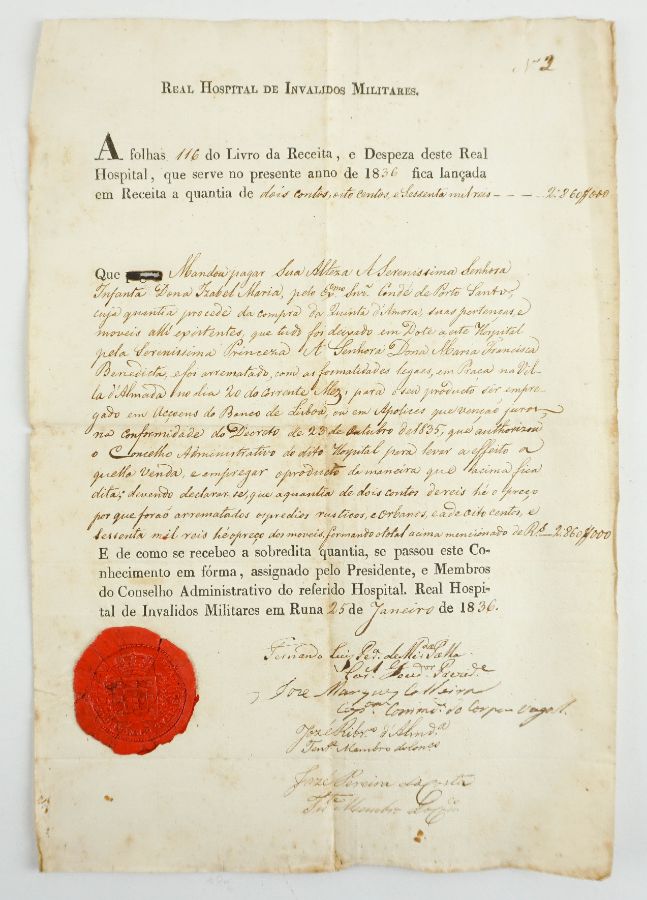 Nº 2
REAL HOSPITAL DE INVALIDOS MILITARES.
A folhas 116 do Livro da Receita, e Despeza deste Real
Hospital, que serve no presente anno de 1836 fica lançada
em Receita a quantia de dois contos, oito centos, e sessenta mil reis — — — 2:860$000
Que Mandou pagar Sua Alteza A Serenissima Senhora
Infanta Dona Izabel Maria, pelo Exmo Snr. Conde de Porto Santo,
cuja quantia procede da compra da Quinta d'Amora, suas pertenças, e
moveis alli existentes, que tudo foi deixado em Dote a este Hospital
pela Serenissima Princeza A Senhora Dona Maria Francisca
Benedicta, e foi arrematado, com as formalidades legaes, em Praça na Vil-
la d'Almada no dia 20 do corrente Mez, para o seu producto ser empre-
gado em Acçoens do Banco de Lisboa, ou em Apolices que venção juros
na conformidade do Decreto de 23 de Outubro de 1835, que authorizou
o Concelho Administrativo do dito Hospital para levar a effeito a
quella Venda, e empregar o producto da maneira que acima fica
dita; devendo declarar-se, que a quantia de dois contos de reis hé o preço
por que foraõ arrematados os predios rusticos, e urbanos, e a de oito centos, e
sessenta mil reis hé o preço dos moveis, formando o total acima mencionado de Rs. — 2:860$000
E de como se recebeo a sobredita quantia, se passou este Co-
nhecimento em fórma, assignado pelo Presidente, e Membros
do Conselho Administrativo do referido Hospital. Real Hospi-
tal de Invalidos Militares em Runa 25 de Janeiro de 1836.
Fernando Luiz
Joze Marques
José Ribro d'Almda
Tene Membro do Conso
Joze Pereira da Costa
Membro